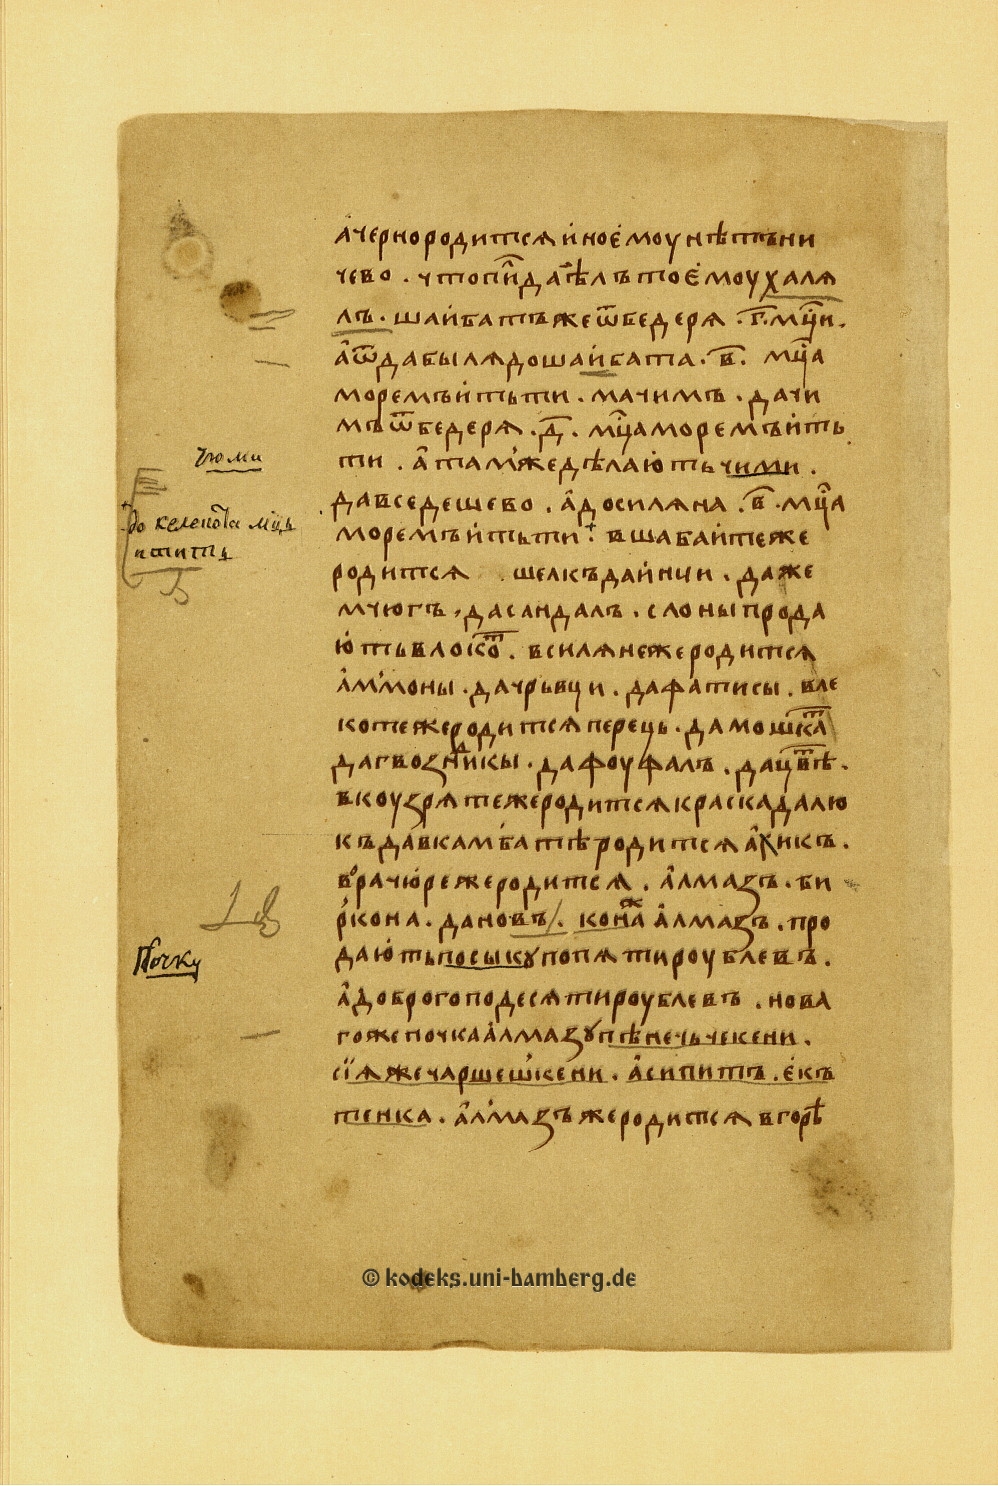 а҆чернородитсѧи҆ноє҆моунѣтъни
чево . чтопи҆даѣлътоє҆моухалѧ
лъ . шаи҆батъжеѿбедерѧ . г҃ . мц҃и .
а҆ѿдабылѧдошаи҆бата . в҃ . мц҃а
моремъи҆тьти . мачимъ . дачи
мъѿбедерѧ . д҃ . мц҃аморемъи҆ть
ти . а҆тамжедѣлаю҆тьчими .
давседешево . а҆досилѧна . в҃ . мц҃а
моремъи҆тьти . вшабаи҆теже
родитсѧ шелкъдаи҆нчи . даже
мчюгъ , дасандалъ . слоныпрода
ю҆тьвлокот . всилѧнежеродитсѧ
а҆ммоны . дачрьвци . дафатисы . вле
котежеродитсѧперець . дамошкат
дагвоздникы . дафоуфалъ . дацвѣт .
вкоузрѧтежеродитсѧкраскадалю
къдавкамбатѣродитсѧа҆хикъ .
врачю҆режеродитсѧ . а҆лмазъ . би
ркона . дановъ / . конажа҆лмазъ . про
даю҆тьпосыкупопѧтироублевъ .
а҆доброгоподесѧтироублевъ . нова
гожепочкаа҆лмазупѣнечьчекени .
сїѧжечаршешкени . а҆сипитъ . е҆къ
тенка . а҆лмазъжеродитсѧвгорѣ
чюми
до келекота мць
итить
Почку
© kodeks.uni-bamberg.de